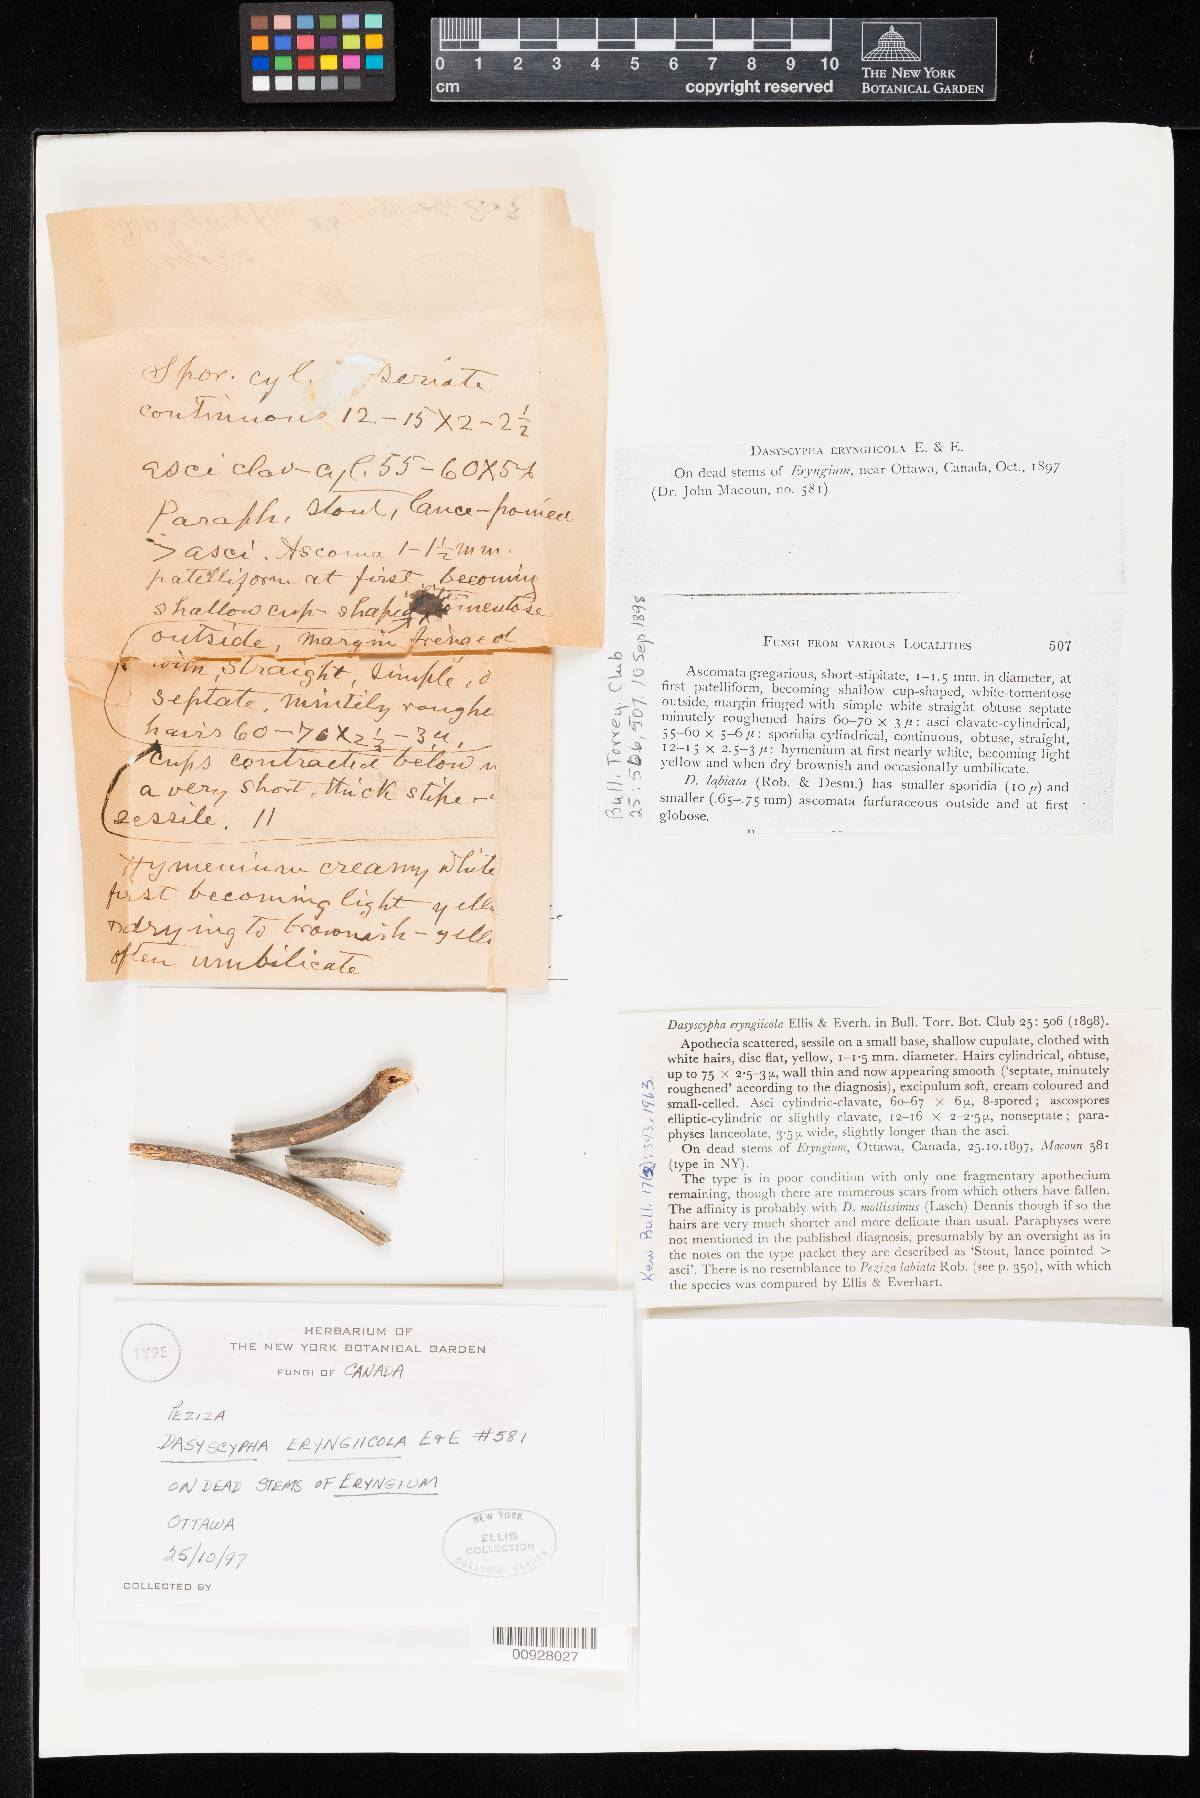 0 1 2 3 4 5 6 7 8 9 10
cm
copyright reserved
THE NEW YORK
BOTANICAL GARDEN
Spor. cyl. seriate
continuous 12-15X2-2½
asci clav-cyl. 55-60X5
Paraph. stout, lance-poined
> asci. Ascoma 1-1½ mm.
patelliform at first, becoming
shallow cup-shaped tomentose
outside, margin frenged
with, straight, simple,
septate, mintily roughe
hairs 60-70X2½-3µ,
cups contracted below
a very short, thick stipe
sessile. 11
Hymenium creamy white
first becoming light yell
drying to brownish-yell
often umbilicate
DASYSCYPHA ERYNGIICOLA E. & E.
On dead stems of Eryngium, near Ottawa, Canada, Oct., 1897
(Dr. John Macoun, no. 581).
Bull. Torrey Club
25: 506, 507. 10 Sep 1898
FUNGI FROM VARIOUS LOCALITIES 507
Ascomata gregarious, short-stipitate, 1–1.5 mm. in diameter, at
first patelliform, becoming shallow cup-shaped, white-tomentose
outside, margin fringed with simple white straight obtuse septate
minutely roughened hairs 60–70 × 3 µ: asci clavate-cylindrical,
55–60 × 5–6 µ: sporidia cylindrical, continuous, obtuse, straight,
12–15 × 2.5–3 µ: hymenium at first nearly white, becoming light
yellow and when dry brownish and occasionally umbilicate.
D. labiata (Rob. & Desm.) has smaller sporidia (10 µ) and
smaller (.65–.75 mm) ascomata furfuraceous outside and at first
globose.
Kew Bull. 17(2): 343. 1963.
Dasyscypha eryngiicola Ellis & Everh. in Bull. Torr. Bot. Club 25: 506 (1898).
Apothecia scattered, sessile on a small base, shallow cupulate, clothed with
white hairs, disc flat, yellow, 1–1·5 mm. diameter. Hairs cylindrical, obtuse,
up to 75 × 2·5–3µ, wall thin and now appearing smooth ('septate, minutely
roughened' according to the diagnosis), excipulum soft, cream coloured and
small-celled. Asci cylindric-clavate, 60–67 × 6µ, 8-spored; ascospores
elliptic-cylindric or slightly clavate, 12–16 × 2–2·5µ, nonseptate; para-
physes lanceolate, 3·5µ wide, slightly longer than the asci.
On dead stems of Eryngium, Ottawa, Canada, 25.10.1897, Macoun 581
(type in NY).
The type is in poor condition with only one fragmentary apothecium
remaining, though there are numerous scars from which others have fallen.
The affinity is probably with D. mollissimus (Lasch) Dennis though if so the
hairs are very much shorter and more delicate than usual. Paraphyses were
not mentioned in the published diagnosis, presumably by an oversight as in
the notes on the type packet they are described as 'Stout, lance pointed >
asci'. There is no resemblance to Peziza labiata Rob. (see p. 350), with which
the species was compared by Ellis & Everhart.
TYPE
HERBARIUM OF
THE NEW YORK BOTANICAL GARDEN
FUNGI OF CANADA
PEZIZA
DASYSCYPHA ERYNGIICOLA E&E #581
ON DEAD STEMS OF ERYNGIUM
OTTAWA
25/10/97
NEW YORK
ELLIS
COLLECTION
BOTANICAL GARDEN
COLLECTED BY
00928027